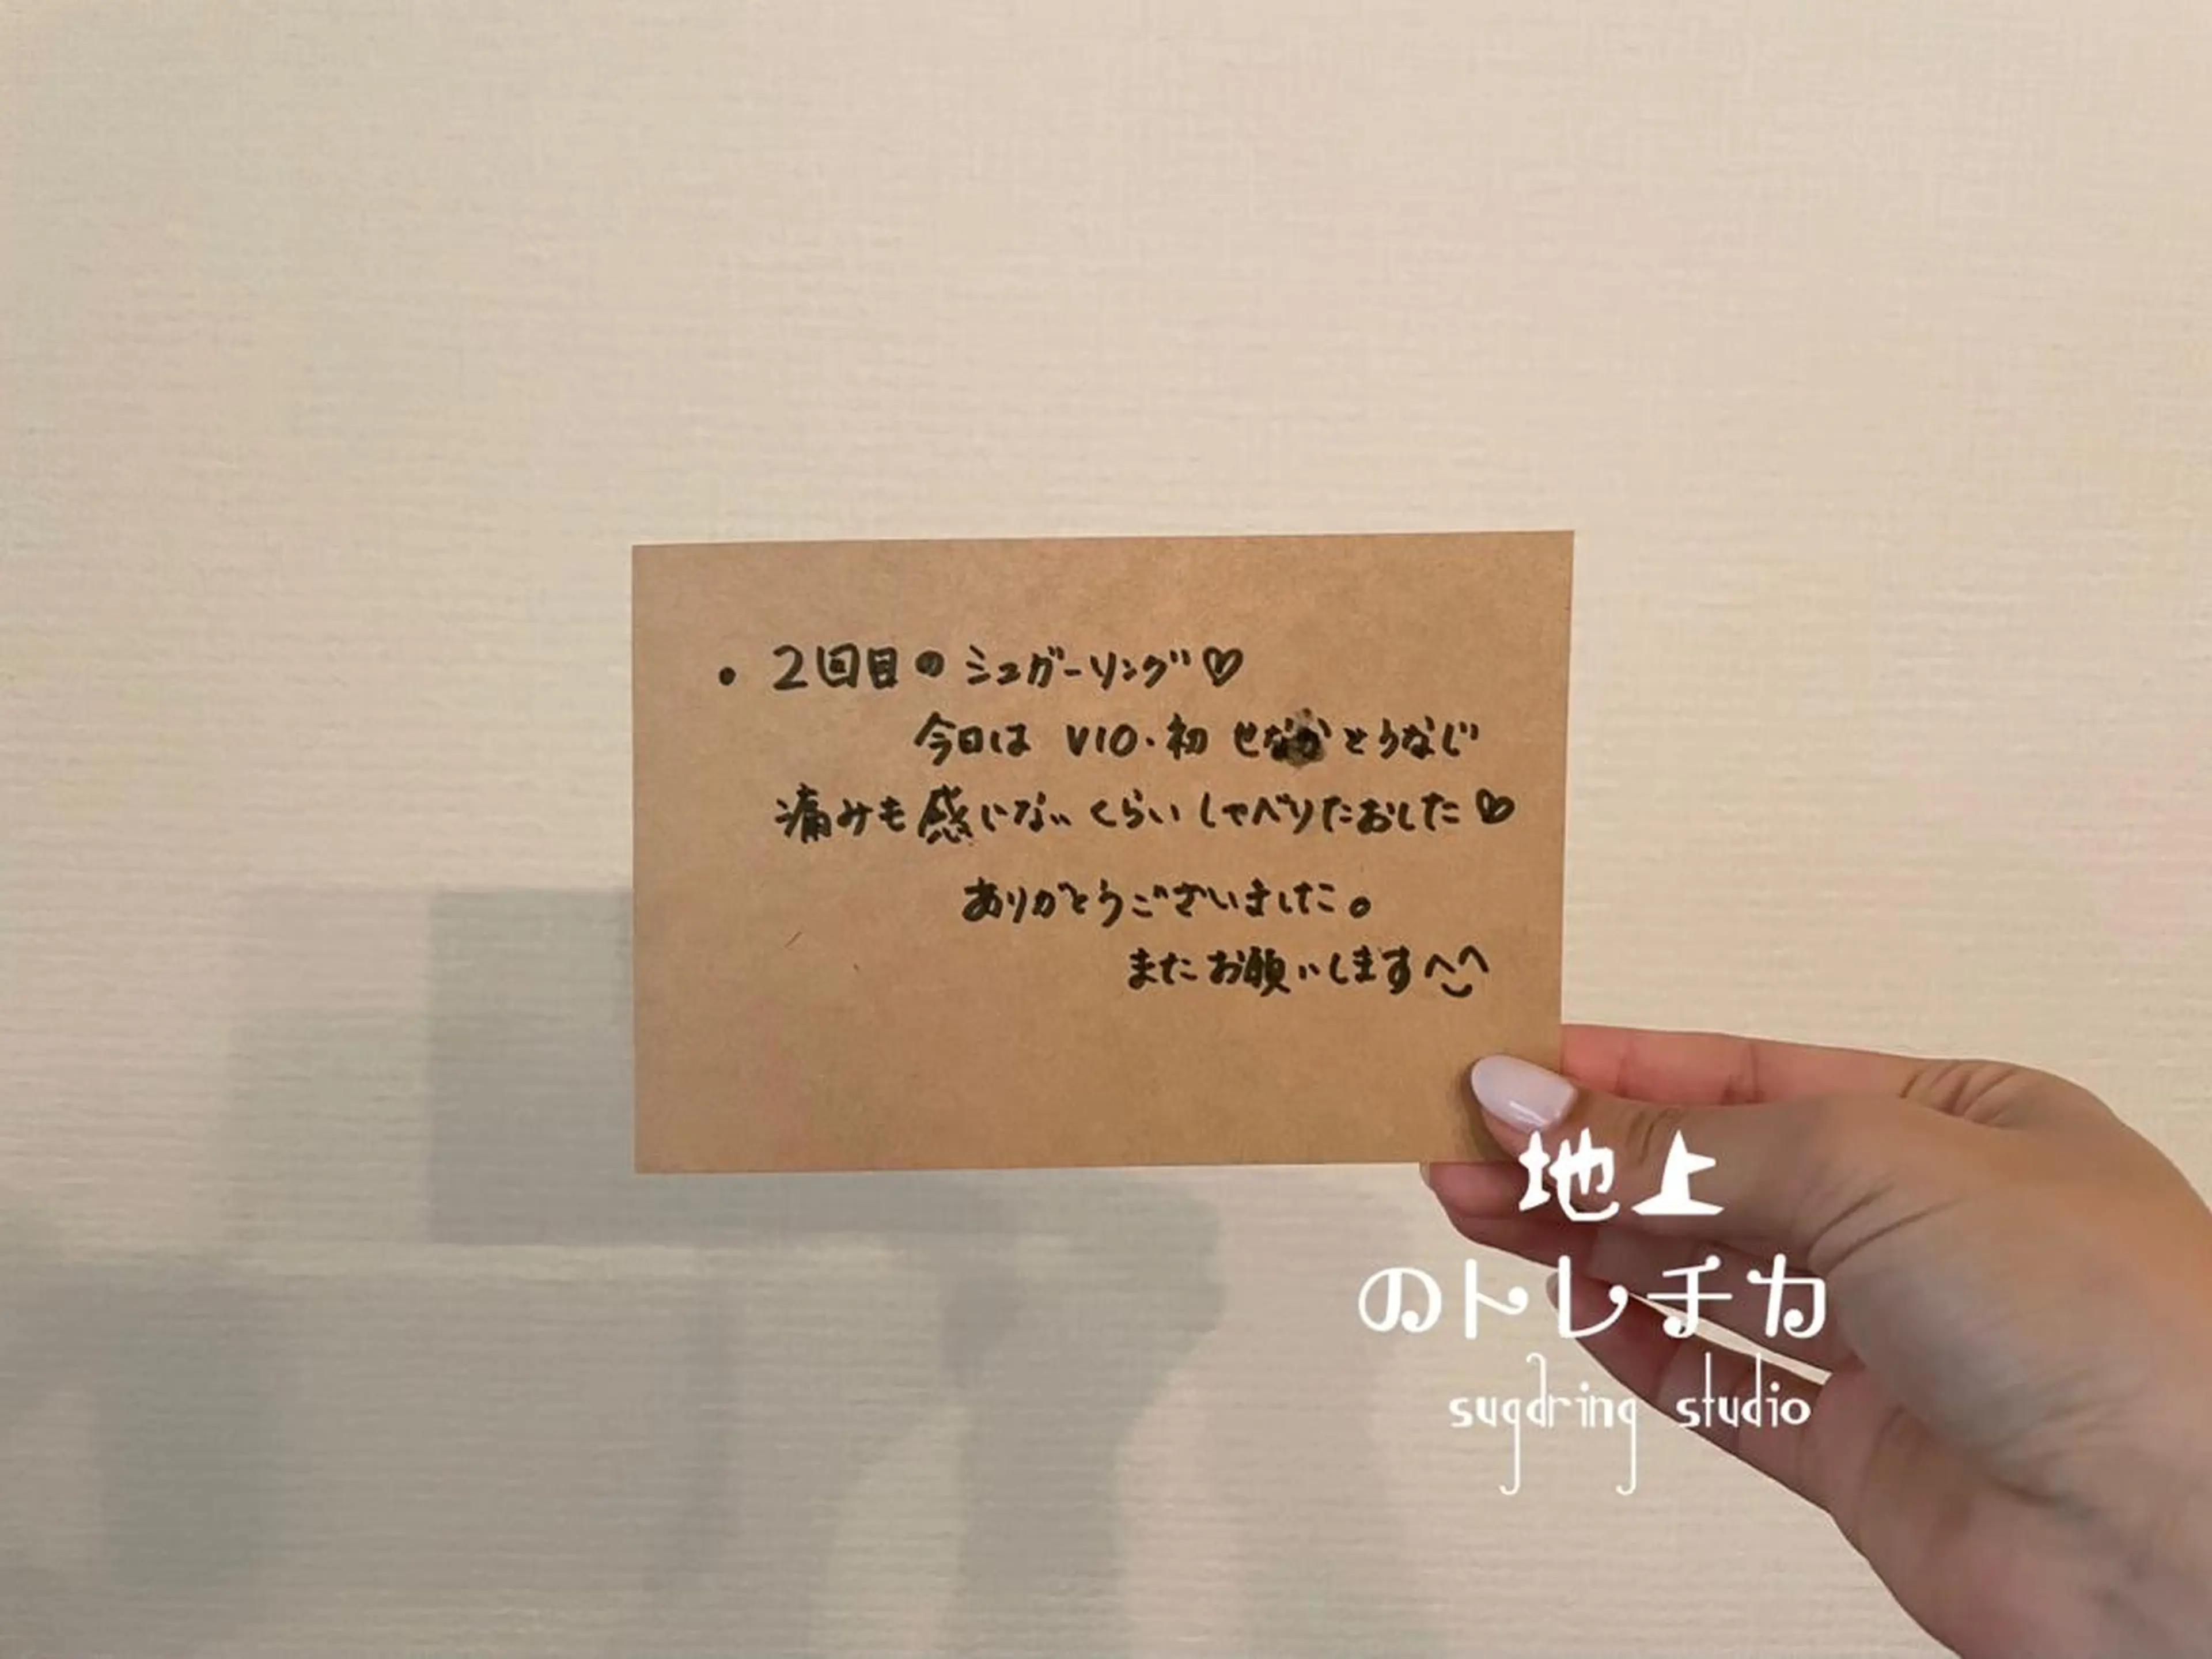 • 2回目のシュガーリング♡
今日は VIO・初 せなかとうなじ
痛みも感じないくらいしゃべりたおした♡
ありがとうございました。
またお願いします^^
地上
のトレチカ
sugaring studio